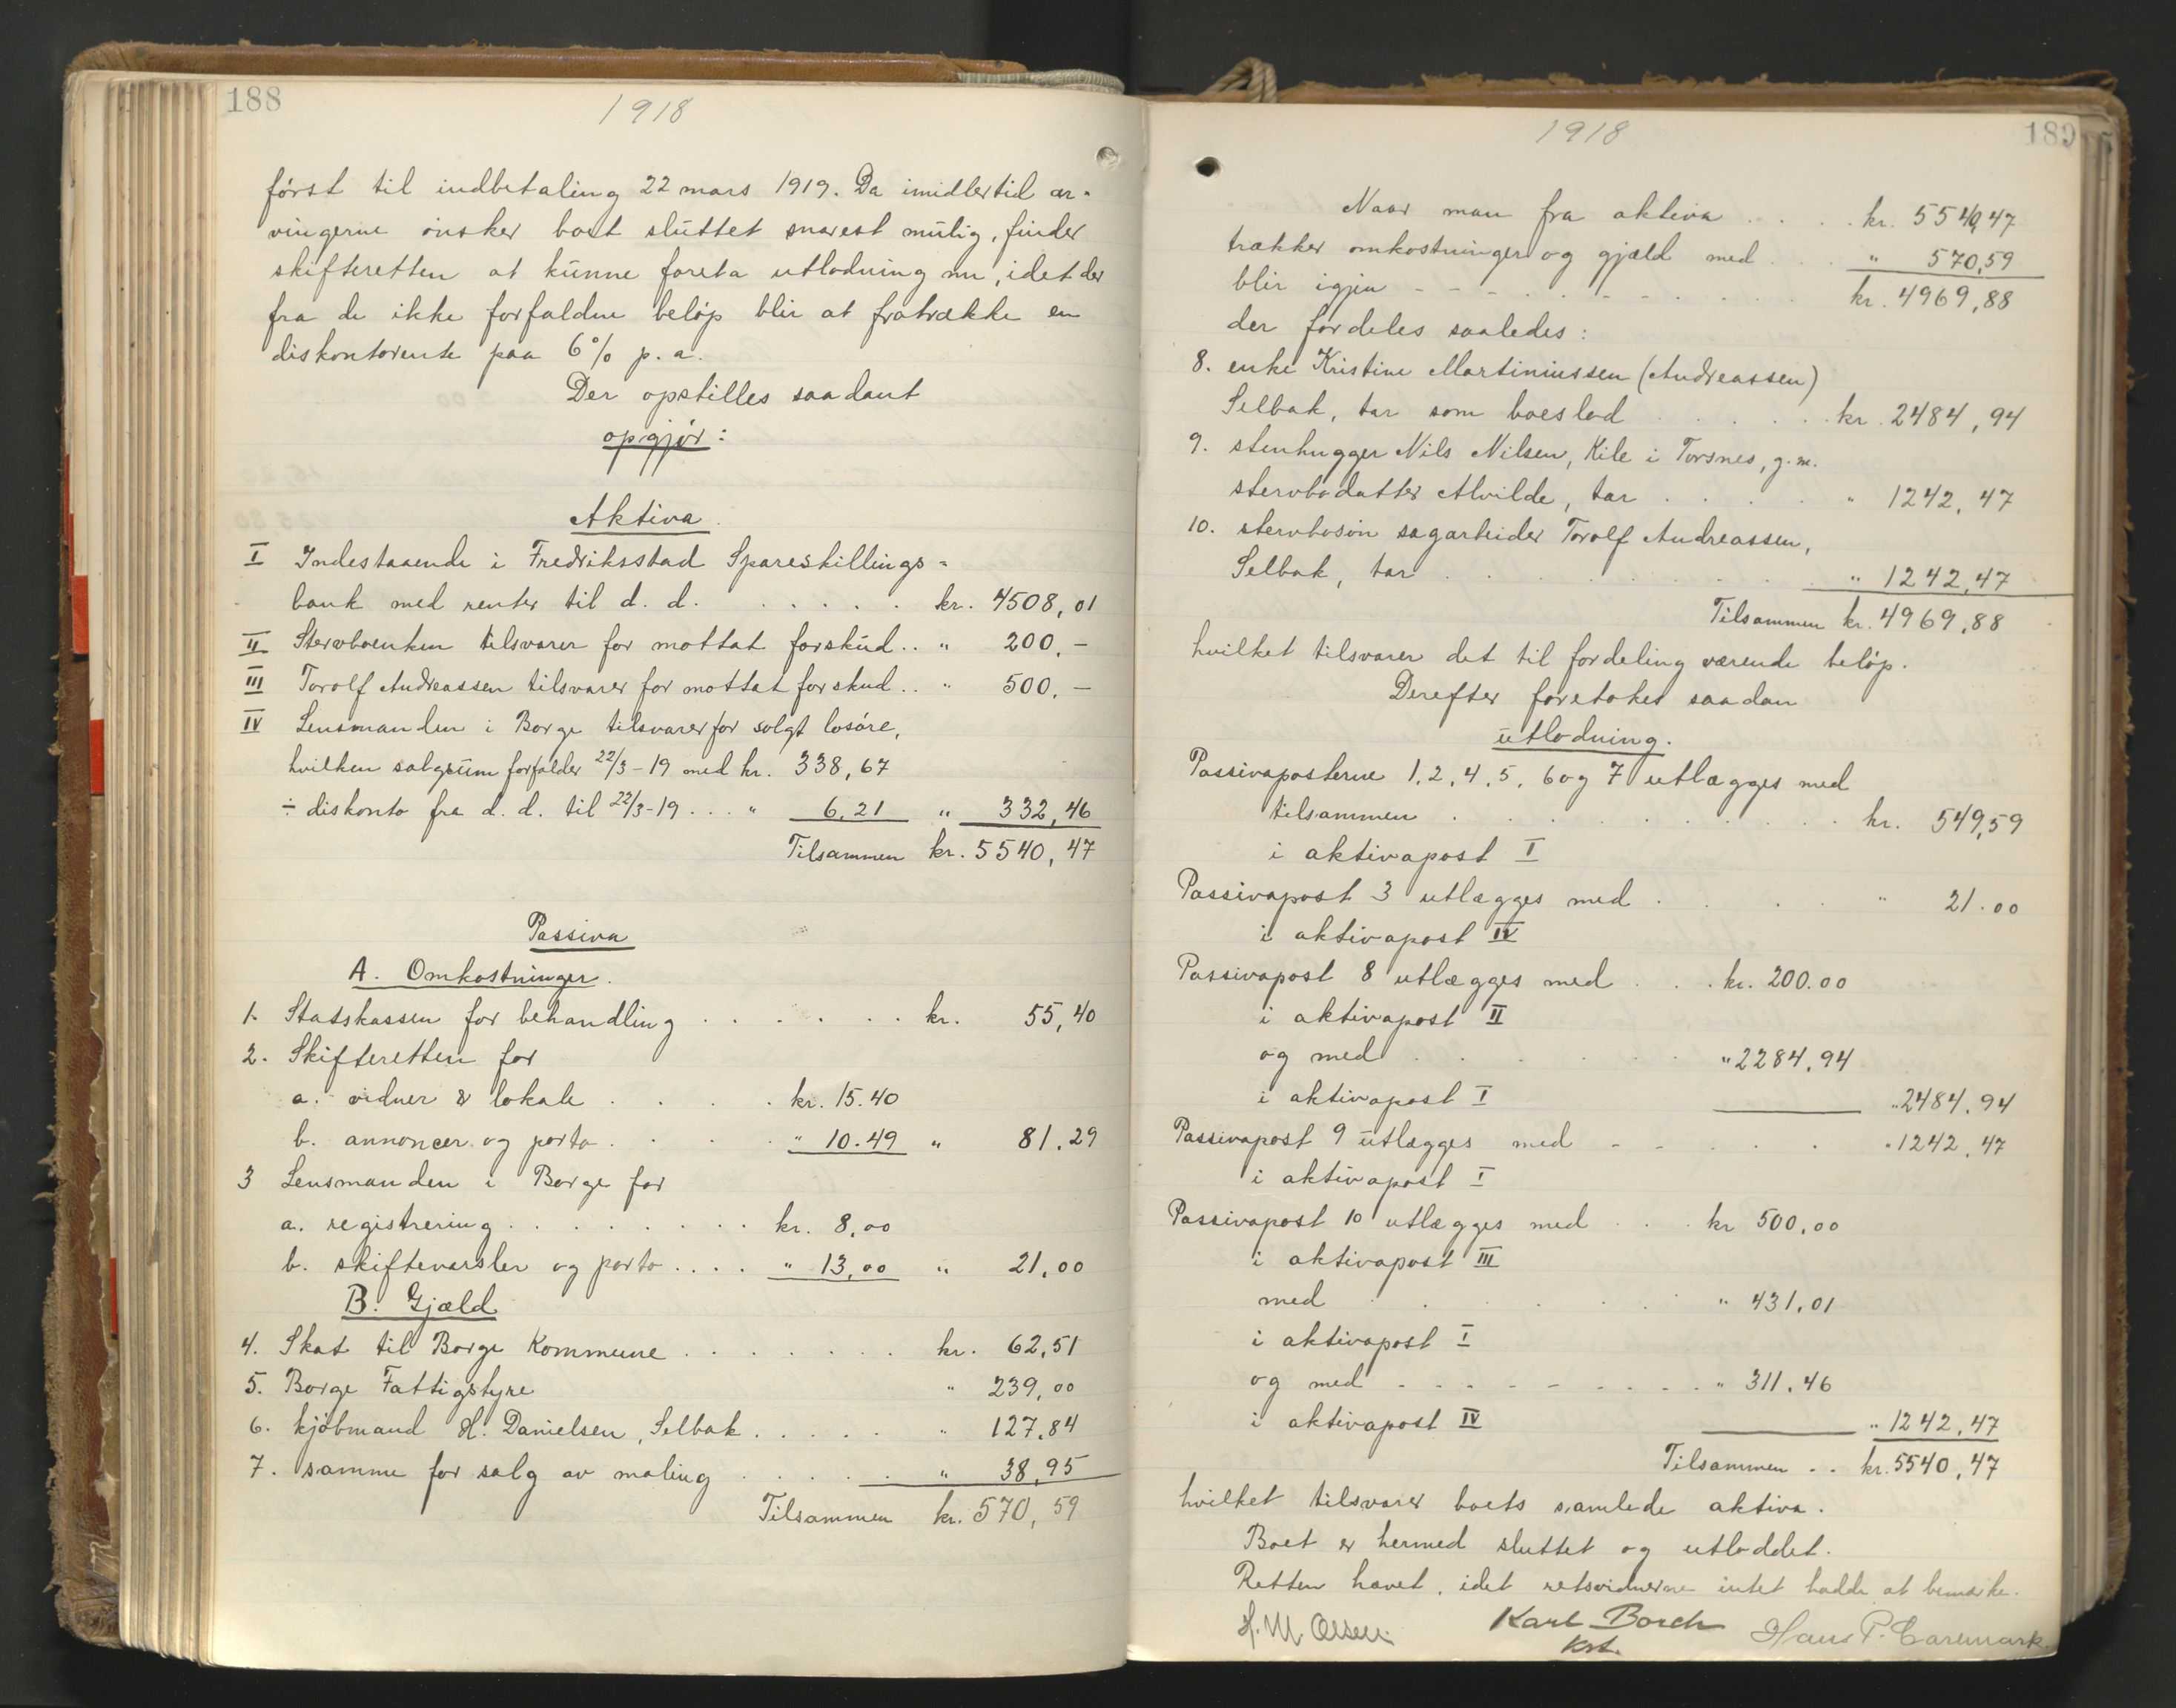 188
1918
først til indbetaling 22 mars 1919. Da imidlertid ar-
vingerne ønsker boet sluttet snarest mulig, finder
skifteretten at kunne foreta utlodning nu, idet der
fra de ikke forfaldne beløp blir at fratrække en
diskontorente paa 6% p. a.
Der opstilles saadant
opgjør:
Aktiva.
I Indestaaende i Fredriksstad Spareskillings-
bank med renter til d. d. . . . . . kr. 4508,01
II Stervboenken tilsvarer for mottat forskud . . " 200.-
III Torolf Andreassen tilsvarer for mottat forskud . . " 500.-
IV Lensmanden i Borge tilsvarer for solgt losøre,
hvilken salgssum forfalder 22/3-19 med kr. 338,67
÷ diskonto fra d. d. til 22/3-19 . . . " 6.21 " 332,46
Tilsammen kr. 5540,47
Passiva
A. Omkostninger.
1. Statskassen for behandling . . . . . . kr. 55,40
2. Skifteretten for
a. vidner & lokale . . . . kr. 15.40
b. annoncer og porto . . . . " 10.49 " 81.29
3 Lensmanden i Borge for
a. registrering . . . . . . . . kr. 8,00
b. skiftevarsler og porto . . . . " 13,00 " 21,00
B. Gjæld
4. Skat til Borge Kommune . . . . . . . kr. 62,51
5. Borge Fattigstyre " 239,00
6. kjøbmand H. Danielsen, Selbak . . . . . " 127.84
7. samme for salg av maling . . . . . " 38,95
Tilsammen kr. 570,59
189
1918
Naar man fra aktiva . . . . kr. 5540,47
trækker omkostninger og gjæld med . . . " 570,59
blir igjen - - - . . - - . . . . kr. 4969,88
der fordeles saaledes:
8. enke Kristine Martiniussen (Andreassen)
Selbak, tar som boeslod . . . . . . kr. 2484,94
9. stenhugger Nils Nilsen, Kile i Torsnes, g. m.
stervbodatter Alvilde, tar . . . . " 1242,47
10. stervbosøn sagarbeider Torolf Andreassen,
Selbak, tar . . . . . . . . " 1242,47
Tilsammen kr. 4969,88
hvilket tilsvarer det til fordeling værende beløp.
Derefter foretokes saadan
utlodning.
Passivaposterne 1, 2, 4, 5, 6 og 7 utlægges med
tilsammen . . . . . . . . . . kr. 549,59
i aktivapost I
Passivapost 3 utlægges med . . . . " 21.00
i aktivapost IV
Passivapost 8 utlægges med . . . kr. 200.00
i aktivapost II
og med . . . . . . " 2284.94
i aktivapost I " 2484.94
Passivapost 9 utlægges med - - . . . " 1242,47
i aktivapost I
Passivapost 10 utlægges med . . . kr 500,00
i aktivapost III
med . . . . . . " 431,01
i aktivapost I
og med - - - - - - . . . . " 311.46
i aktivapost IV " 1242,47
Tilsammen . . kr. 5540,47
hvilket tilsvarer boets samlede aktiva.
Boet er hermed sluttet og utloddet.
Retten hævet, idet retsvidnerne intet hadde at bemærke.
H. M. Olsen. Karl Borch Hans P. Caremark.
kst.